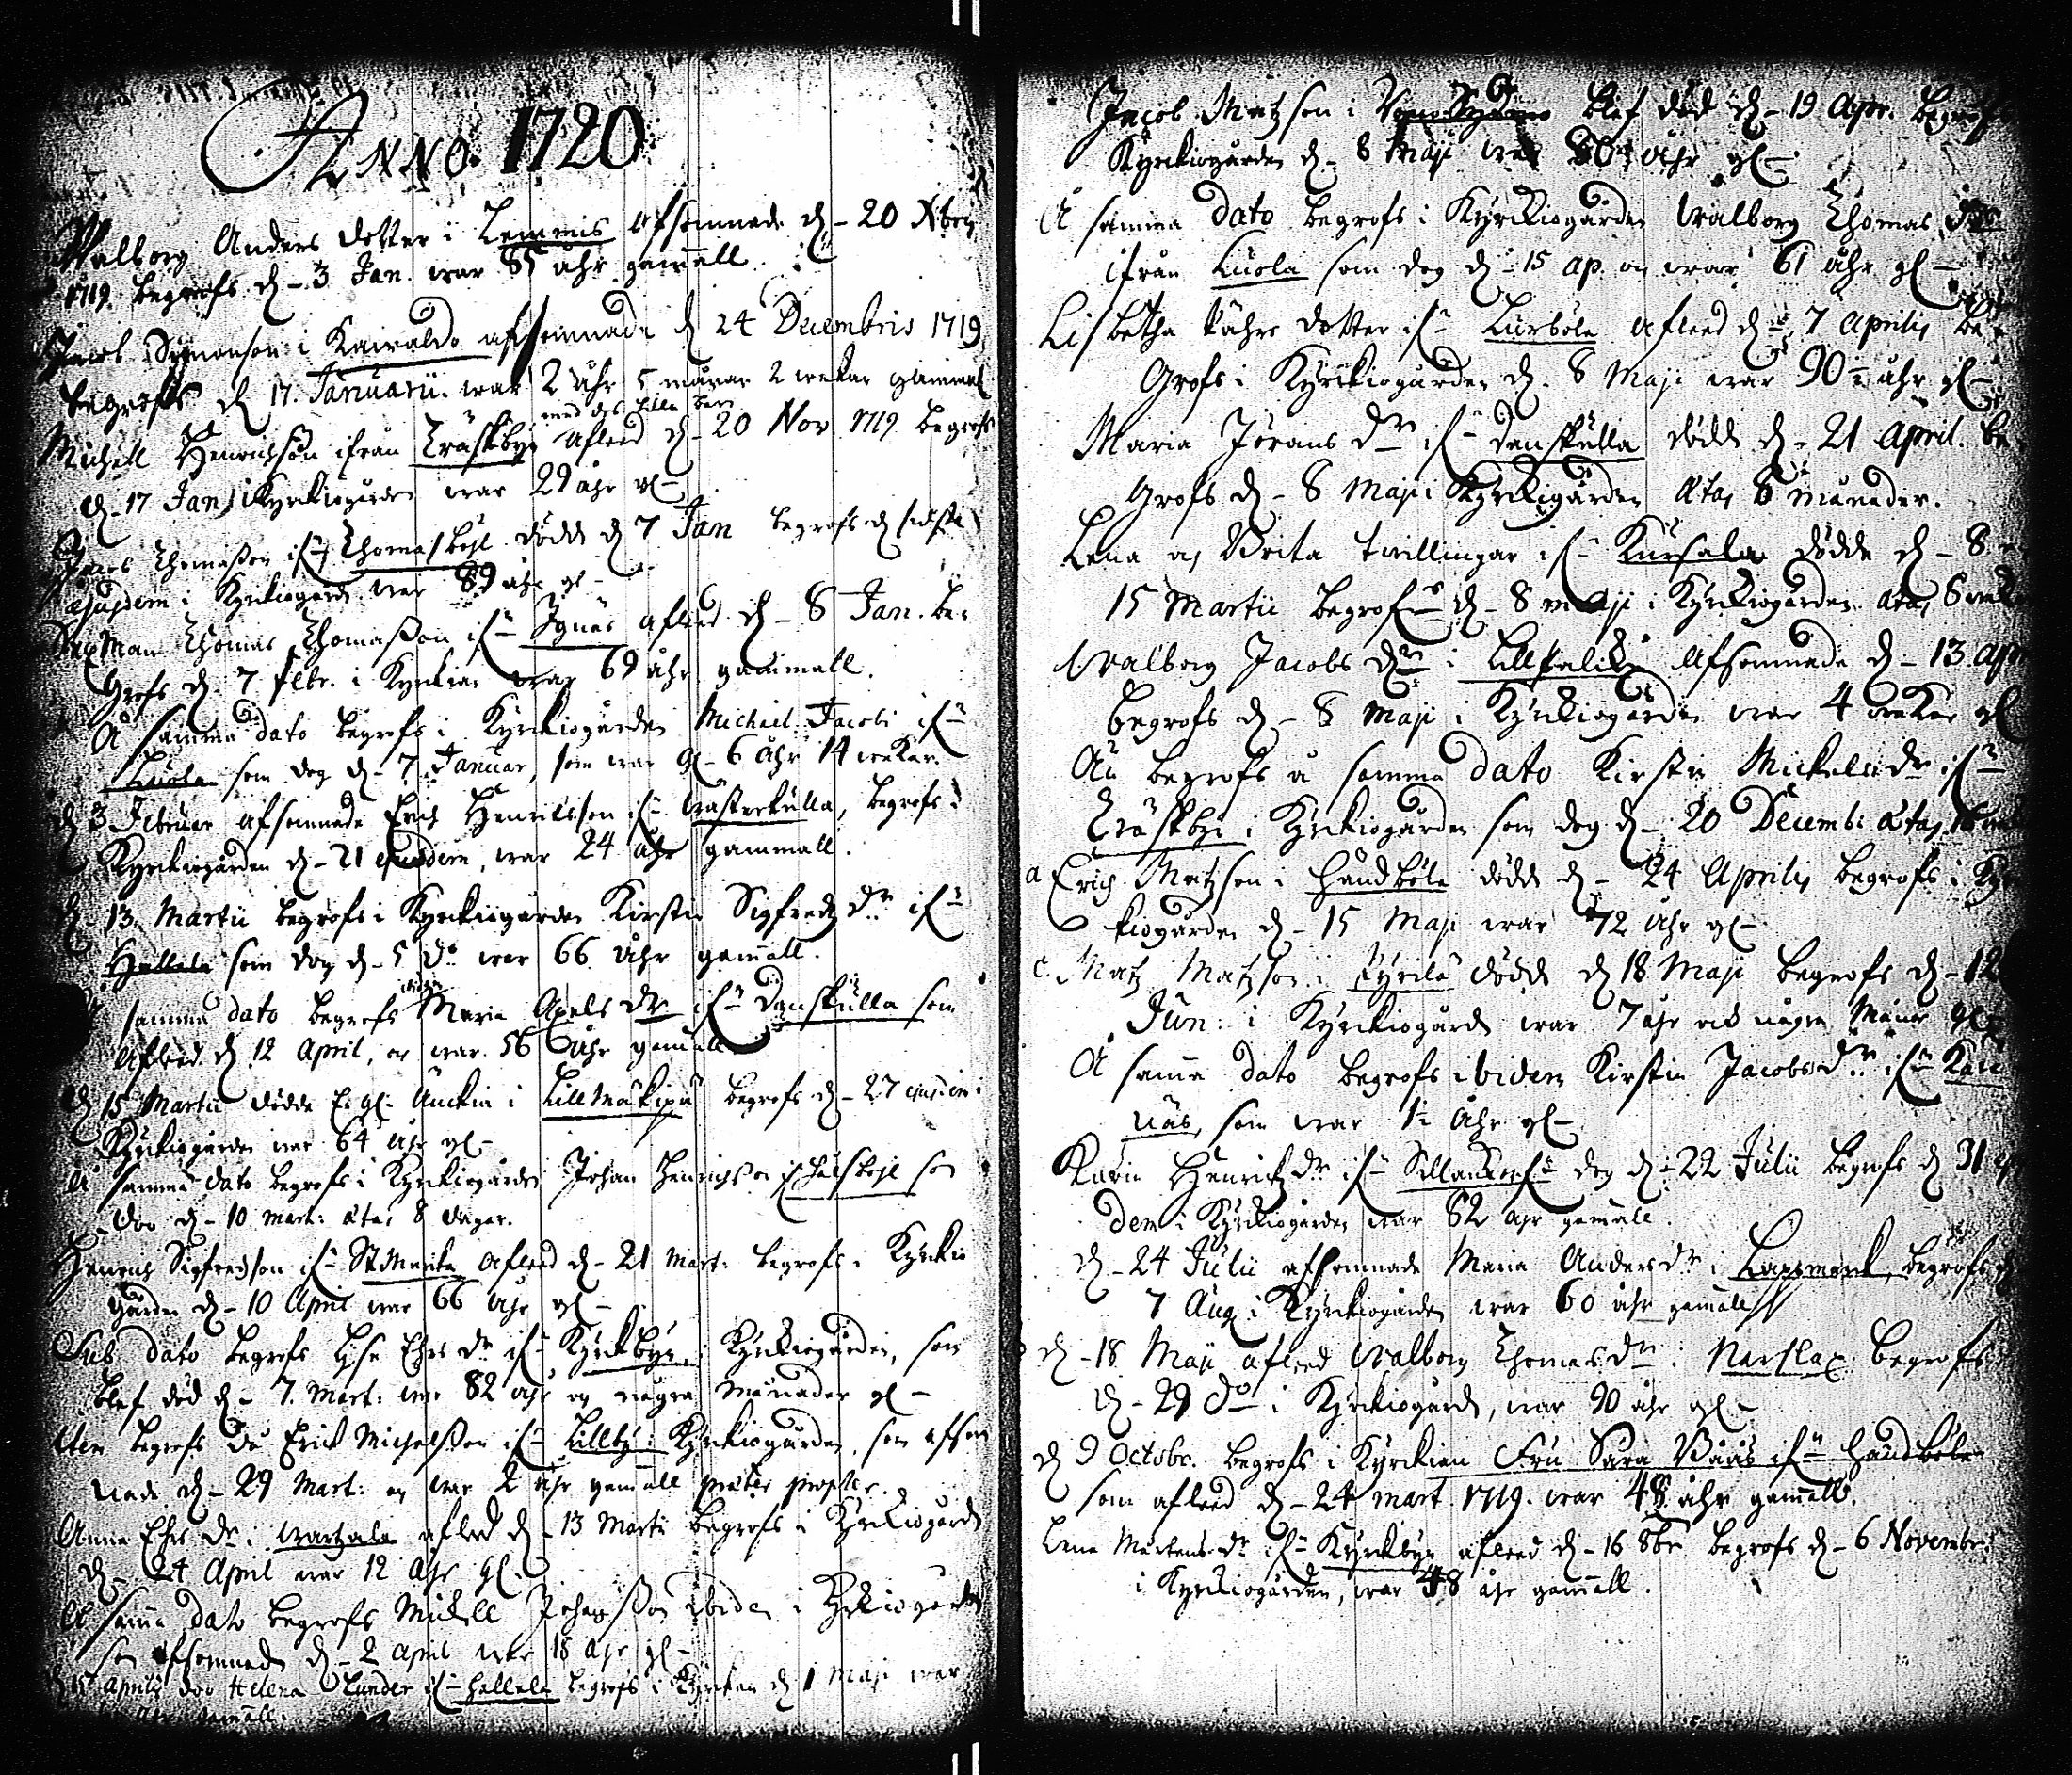 ANNO. 1720
Walborg Anders dotter i Lemnis afsomnade d. 20 Xbr
1719. begrofs d. 3 Jan. war 85 åhr gamall.
Jacob Simonson i Kairaldo afsomnade d 24 Decembris 1719
begrofs d 17. Januarii. war 2 åhr 5 månar 2 wekar gammal
Michell Henrichson ifrån Träskbyi afleed d. 20 Nov 1719 begrofs
d. 17 Jan i Kyrkiogården war 29 åhr gl
Thomasson if:n Thomasböhl dödde d 7 Jan begrofs d sidste
ejusdem i Kyrkiogård. war 89 åhr gl
Man Thomas Thomasson if:n Ignäs afleed d. 8 Jan. be:
grofs d. 7 febr. i Kyrkian war 69 åhr gammall.
Å samma dato begrofs i Kyrkiogården Michael Jacobi if:n
Kuola som dog d. 7 Januar, som war gl. 6 åhr 14 wekar.
d 3 Februar afsomnade Erich Henricsson if:n Wästerkulla, begrofs i
Kyrkiogården d. 21 ejusdem, war 24 åhr gammall.
d. 13 Martii begrofs i Kyrkiogården Kirstin Sigfredz dr if:n
Hallela som dog d. 5 do war 66 åhr gamall.
samma dato begrofs Maria Axels dr if:n Danskulla som
afleed d. 12 April, oc war 56 åhr gamall
d 15 Martii dödde E. gl: Änckia i Lillmåkipä begrofs d. 27 ejusdem i
Kyrkiogården war 64 åhr gl
å samma dato begrofs i Kyrkiogården Johan Henrichson if böhl som
doo d. 10 Mart: ætas 8 dagar.
Henrich Sigfredson if:n afleed d. 21 Mart: begrofs i Kyrkio
gården d. 10 April war 66 åhr gl
Sub dato begrofs Lisa Ehrs dr if:n Kyrckbyn i Kyrkiogården, som
blef död d. 7. Mart: war 82 åhr og någre månader gl
Item begrofs Erich Michelsson if:n Lillby i Kyrkiogården, som afsom
nade d. 29 Mart: og war 2 åhr gamall præter propter.
Anna Ehrs dr i Martzala afled d. 13 Martii begrofs i Kyrkiogård
d. 24 April war 12 åhr gl.
Å samma dato begrofs Mickell Johansson ibidem i Kyrkiogården
som afsomnade d. 2 April war 18 åhr gl
d 15 Aprilis doo Helena Lunder if:n Hallela begrofs i Kyrckan d 1 Maji war
gamall.
Jacob Matzson i blef död d. 19 Apr. begrofs
Kyrkiogården d. 8 Maji war 80 åhr gl
Å samma dato begrofs i Kyrkiogården Walborg Thomas dr
ifrån Kuola som dog d. 15 Ap. og war 61 åhr gl
Lisbetha Påhrs dotter if:n Kurböle afleed d. 7 Aprilis be:
grofs i Kyrkiogården d. 8 Maji war 90 åhr gl
Maria Jörans dr if:n Danskulla dödde d. 21 April. be:
grofs d. 8 Maji i Kyrkigården ætas 8 månader.
Lena og Brita twillingar if:n Kursala dödde d. 8
15 Martii begrofs d. 8 Maji i Kyrkiogården ætas 8 wek
Walborg Jacobs dr i afsomnade d. 13 Apr
begrofs d. 8 Maji i Kyrkiogården war 4 wekar gl
Än begrofs å samma dato Kirstin Mickels dr if:n
Träskbyi i Kyrkiogården som dog d. 20 Decemb: ætas
a Erich Matzson i Handböle dödde d. 24 Aprilis begrofs i Kyr
kiogården d. 15 Maji war 72 åhr gl
c. Matz Matzson i Pyrilä dödde d 18 Maji begrofs d. 12
Jun: i Kyrkiogård war 7 åhr och någre Månar gl
Å samma dato begrofs ibidem Kirstin Jacobs dr if:n Kare
näs, som war 1½ åhr gl
Karin Henrichz dr if:n dog d. 22 Julii begrofs d 31 ejus
dem i Kyrkiogården war 82 åhr gamall.
d. 24 Julii afsomnade Maria Anders dr i Lappmonk, begrofs d
7 Aug i Kyrkiogården war 60 åhr gamall
d. 18 Maji afleed Walborg Thomas dr i Marslax begrofs
d. 29 do i Kyrkiogård, war 90 åhr gl
d 9 Octobr. begrofs i Kyrckian Fru Sara Bååt if:n Handböle
som afleed d. 24 Mart. 1719. war 48 åhr gamall.
Lena Mårtens dr if:n Kyrckbyn afleed d. 16 8br begrofs d. 6 Novembr:
i Kyrkiogården, war 48 åhr gamall.